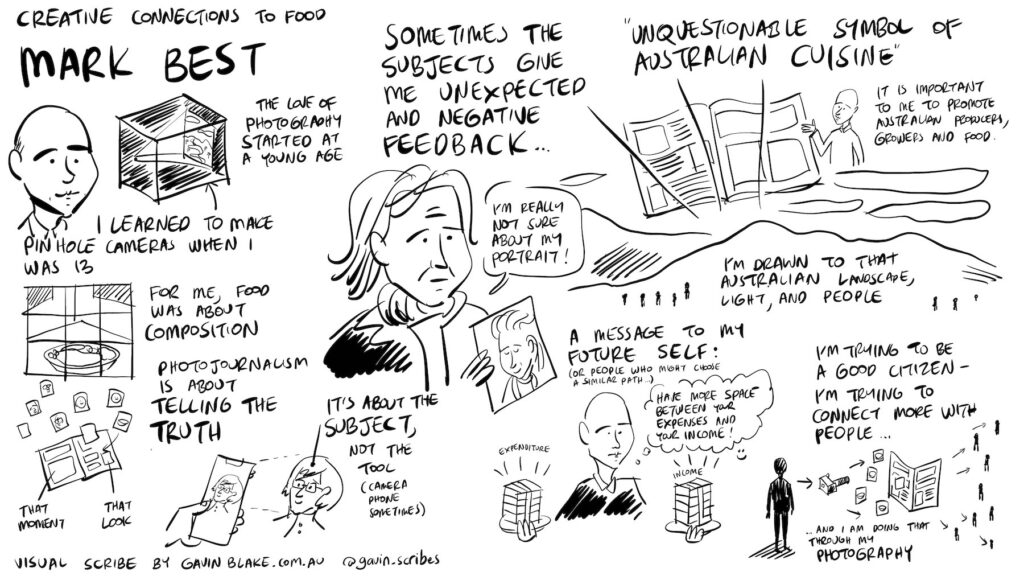 CREATIVE CONNECTIONS TO FOOD
MARK BEST
THE LOVE OF
PHOTOGRAPHY
STARTED AT
A YOUNG AGE
I LEARNED TO MAKE
PINHOLE CAMERAS WHEN I
WAS 13
FOR ME, FOOD
WAS ABOUT
COMPOSITION
PHOTOJOURNALISM
IS ABOUT
TELLING THE
TRUTH
THAT
MOMENT
THAT
LOOK
IT'S ABOUT THE
SUBJECT,
NOT THE
TOOL
(CAMERA
PHONE
SOMETIMES)
SOMETIMES THE
SUBJECTS GIVE
ME UNEXPECTED
AND NEGATIVE
FEEDBACK...
I'M REALLY
NOT SURE
ABOUT MY
PORTRAIT!
"UNQUESTIONABLE SYMBOL OF
AUSTRALIAN CUISINE"
IT IS IMPORTANT
TO ME TO PROMOTE
AUSTRALIAN PRODUCERS,
GROWERS AND FOOD.
I'M DRAWN TO THAT
AUSTRALIAN LANDSCAPE,
LIGHT, AND PEOPLE
A MESSAGE TO MY
FUTURE SELF:
(OR PEOPLE WHO MIGHT CHOOSE
A SIMILAR PATH...)
HAVE MORE SPACE
BETWEEN YOUR
EXPENSES AND
YOUR INCOME!
EXPENDITURE
INCOME
I'M TRYING TO BE
A GOOD CITIZEN -
I'M TRYING TO
CONNECT MORE WITH
PEOPLE...
...AND I AM DOING THAT
THROUGH MY
PHOTOGRAPHY
VISUAL SCRIBE BY GAVINBLAKE.COM.AU @gavin_scribes